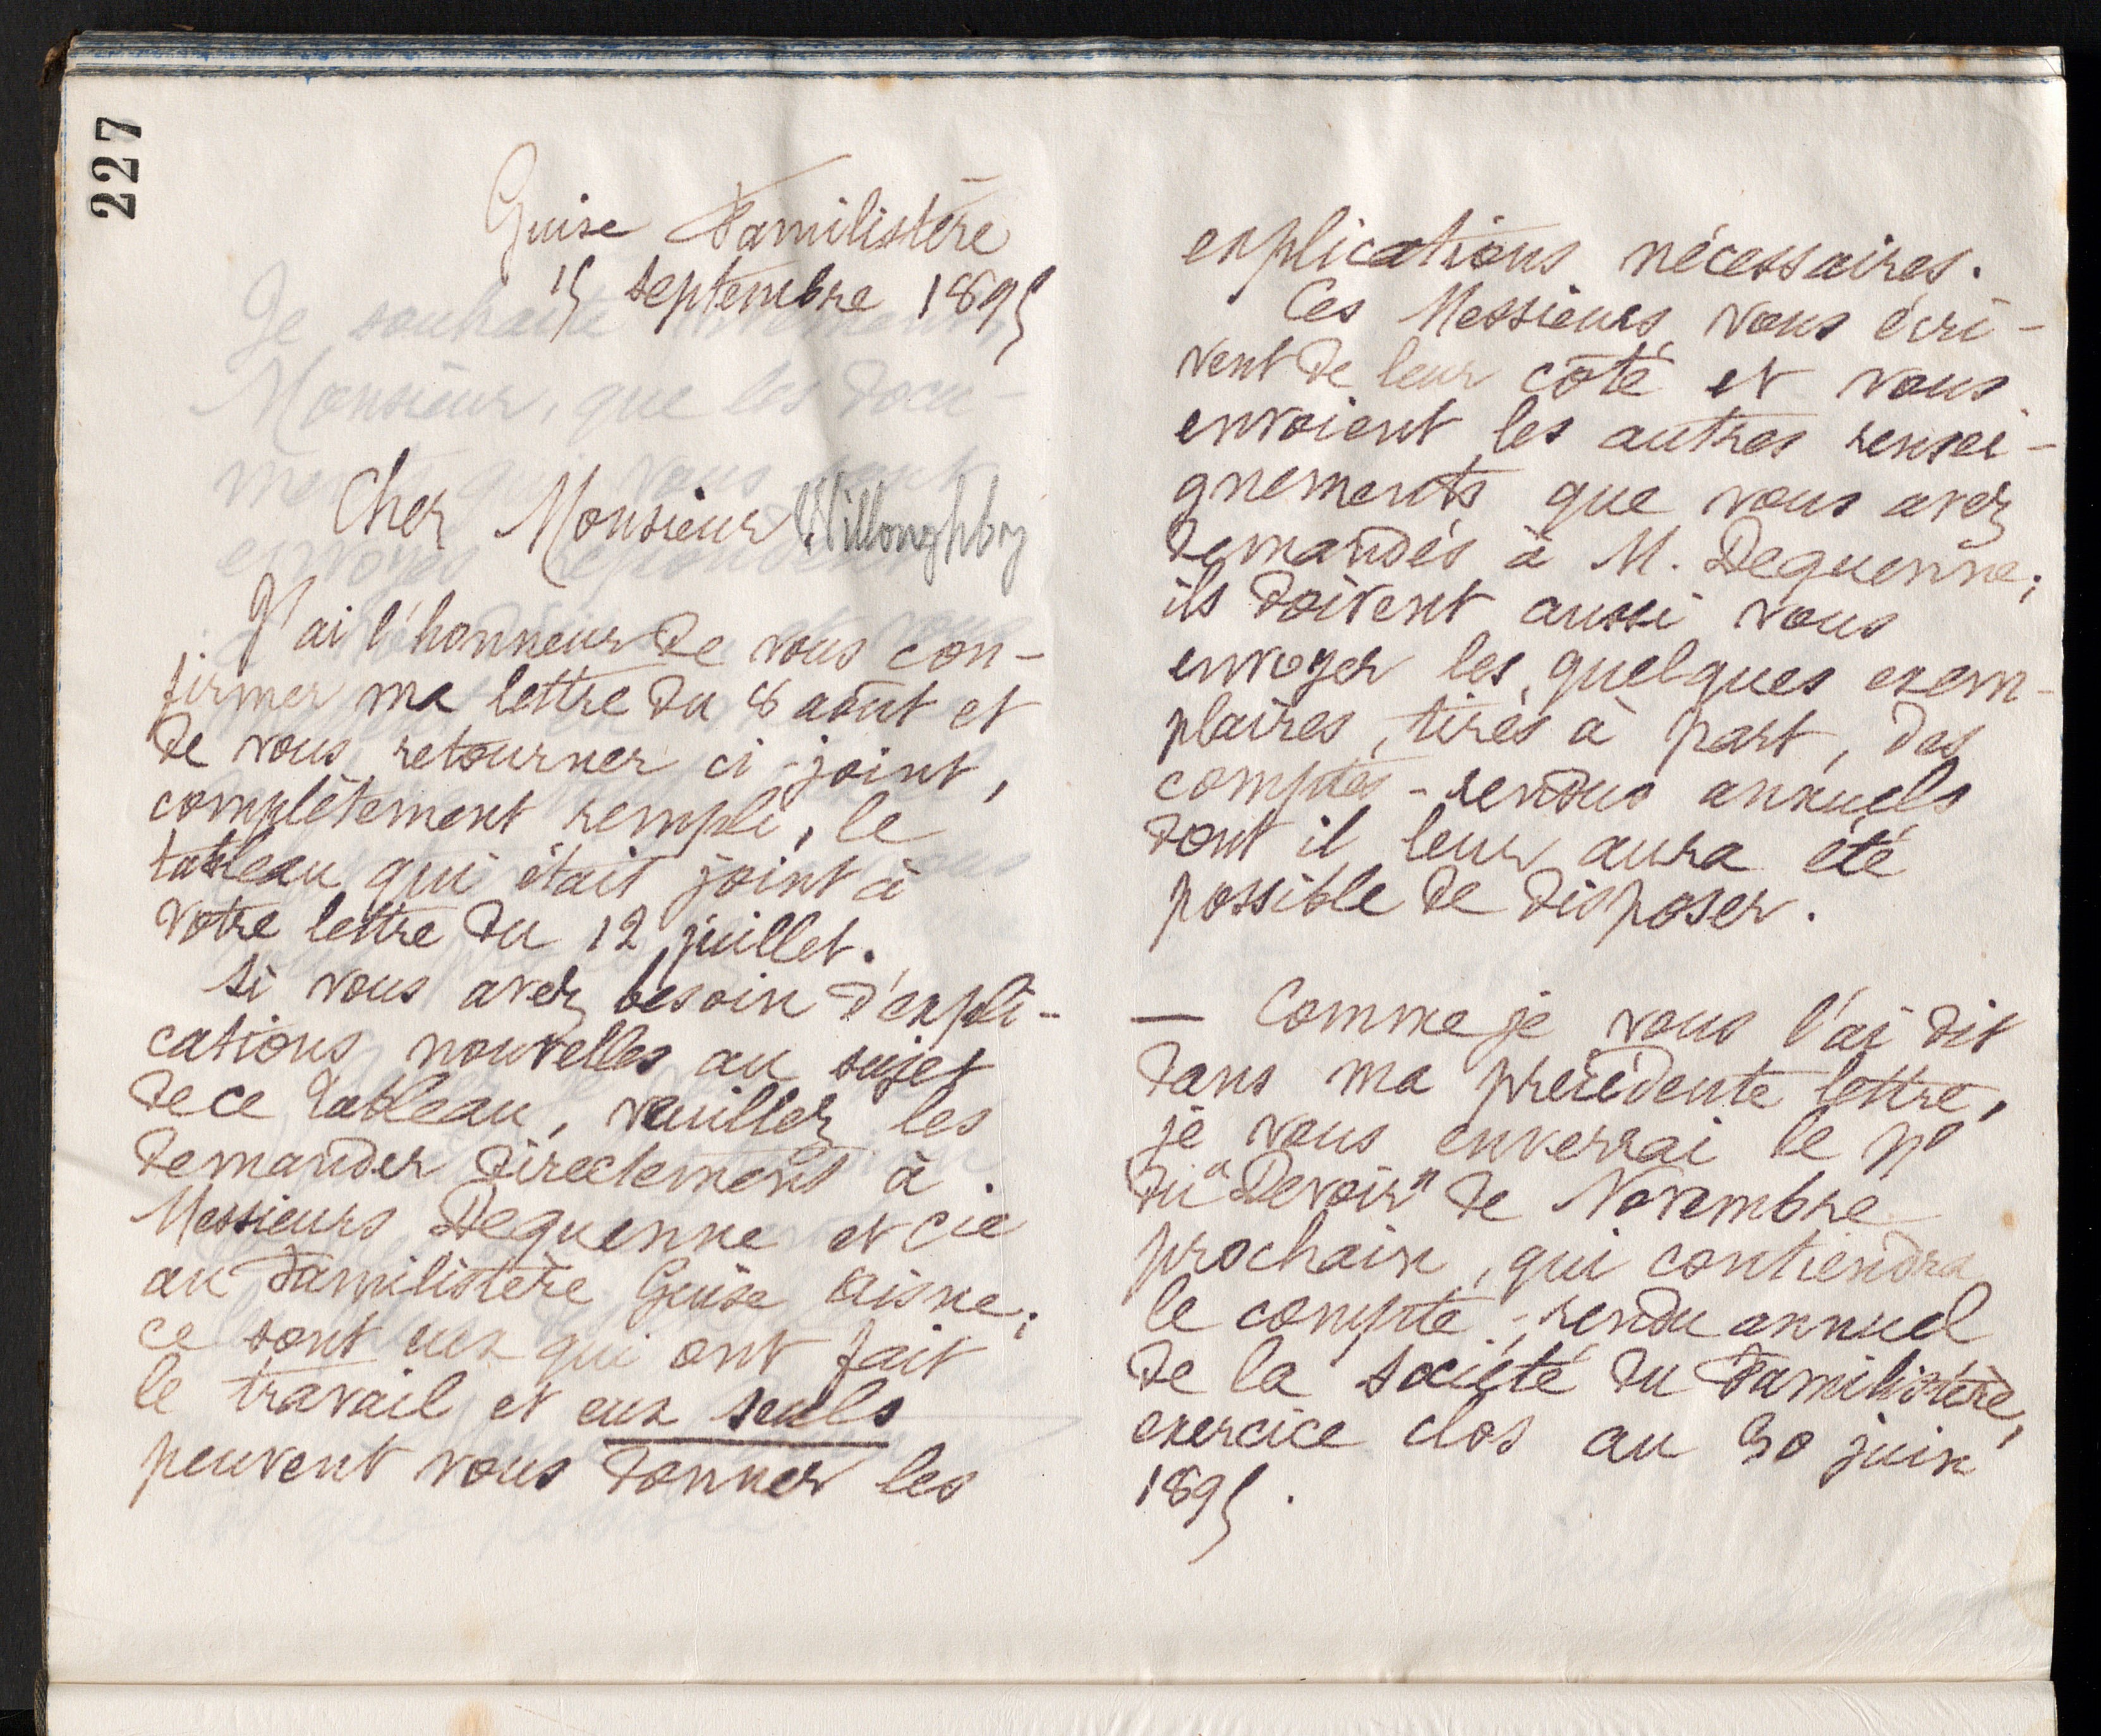 227
Guise Familistère
15 septembre 1895
Cher Monsieur Willoughby
J'ai l'honneur de vous con-
firmer ma lettre du 8 août et
de vous retourner ci-joint,
complètement rempli, le
tableau qui était joint à
votre lettre du 12 juillet.
Si vous avez besoin d'expli-
cations nouvelles au sujet
de ce tableau, veuillez les
demander directement à
Messieurs Dequenne et Cie
au Familistère Guise Aisne;
ce sont eux qui ont fait
le travail et eux seuls
peuvent vous donner les
explications nécessaires.
Ces Messieurs vous écri-
vent de leur côté et vous
envoient les autres rensei-
gnements que vous avez
demandés à M. Dequenne;
ils doivent aussi vous
envoyer les quelques exem-
plaires, tirés à part, des
comptes-rendus annuels
dont il leur aura été
possible de disposer.
— Comme je vous l'ai dit
dans ma précédente lettre,
je vous enverrai le No
du "Devoir" de Novembre
prochain, qui contiendra
le compte-rendu annuel
de la société du Familistère,
exercice clos au 30 juin
1895.